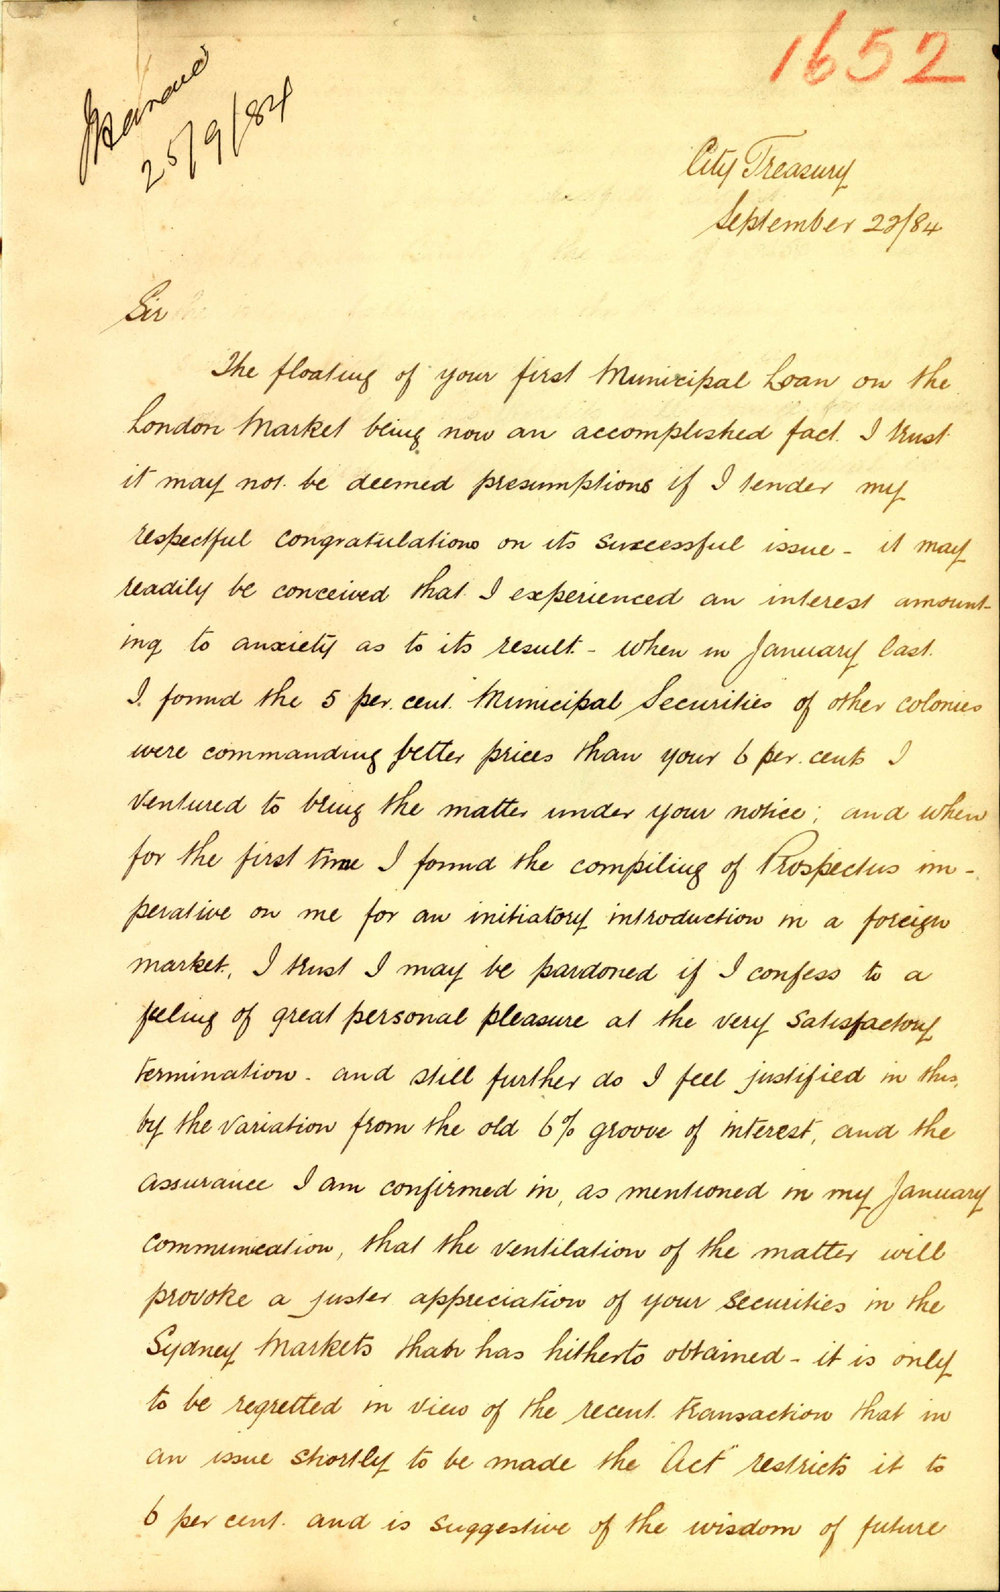 1652
25/9/84
City Treasury
September 22/84
Sir
The floating of your first Municipal Loan on the
London Market being now an accomplished fact. I trust
it may not be deemed presumptions if I tender my
respectful congratulations on its successful issue - it may
readily be conceived that I experienced an interest amount-
ing to anxiety as to its result - when in January last.
I found the 5 per. cent. Municipal Securities of other colonies
were commanding better prices than your 6 per. cents I
ventured to bring the matter under your notice; and when
for the first time I found the compiling of Prospectus im-
perative on me for an initiatory introduction in a foreign
market, I trust I may be pardoned if I confess to a
feeling of great personal pleasure at the very satisfactory
termination - and still further do I feel justified in this,
by the variation from the old 6% groove of interest, and the
assurance I am confirmed in, as mentioned in my January
communication, that the ventilation of the matter will
provoke a juster appreciation of your securities in the
Sydney Markets than has hitherto obtained - it is only
to be regretted in view of the recent transaction that in
an issue shortly to be made the "Act" restricts it to
6 per cent. and is suggestive of the wisdom of future